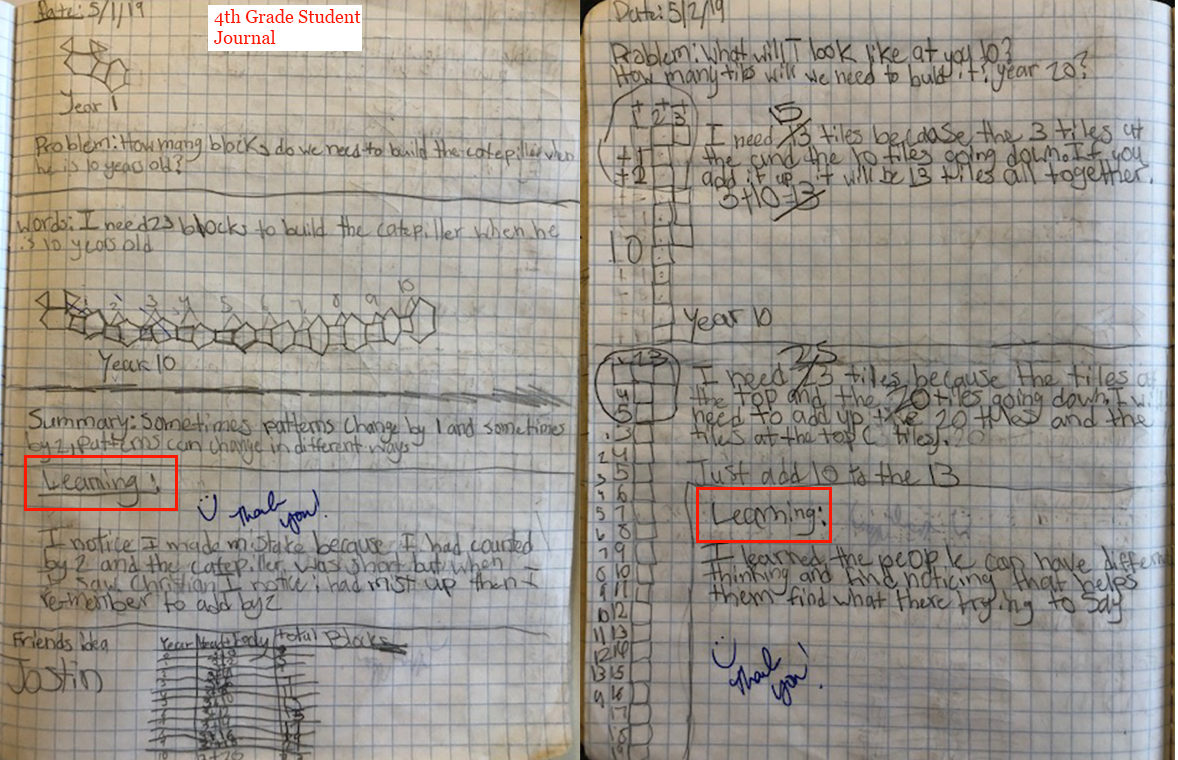 4th Grade Student
Journal
Date: 5/1/19
Year 1
Problem: How many blocks do we need to build the catepiller when
he is 10 years old?
Words: I need 23 blocks to build the catepiller when he
is 10 years old
1 2 3 4 5 6 7 8 9 10
Year 10
Summary: Sometimes patterns change by 1 and sometimes
by 2, patterns can change in different ways
Learning:
Thank
you!
I notice I made mistake because I had counted
by 2 and the catepiller was short but when
I saw Christian I notice i had mist up then I
remember to add by 2
Friends idea
Year Head+Body total Blocks
Jostin
Date: 5/2/19
Problem: What will I look like at year 10?
How many tiles will we need to build it? year 20?
+ + +
1 2 3
15
I need 13 tiles because the 3 tiles at
+1 the and the 10 tiles going down. If you
+2 add it up it will be 13 tiles all together.
3+10=13
10
Year 10
1 2 3
25
I need 23 tiles because the tiles
4 the top and the 20 tiles going down, I
5 need to add up the 20 tiles and the
tiles at the top ( tiles).
Just add 10 to the 13
Learning:
I learned the people can have
thinking and find noticing that helps
them find what there trying to say
Thank
you!